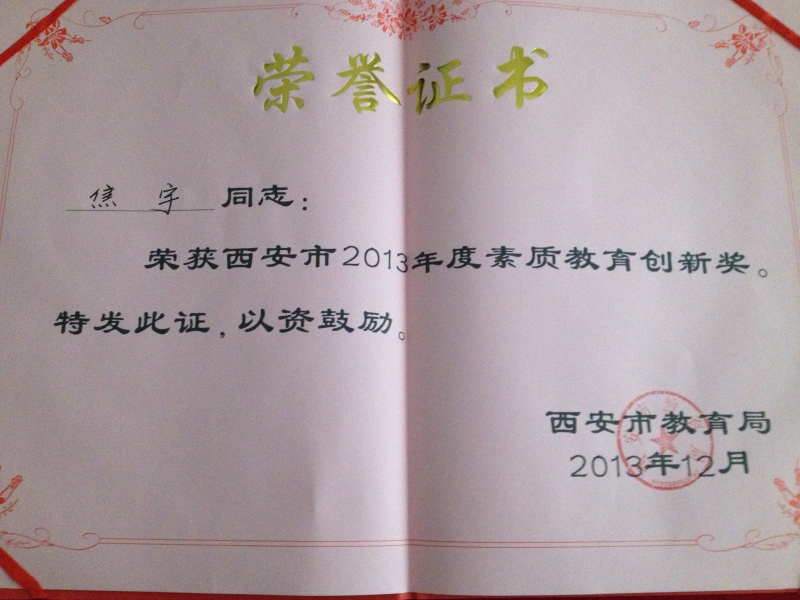 荣誉证书
焦宇 同志：
荣获西安市2013年度素质教育创新奖。
特发此证，以资鼓励。
西安市教育局
2013年12月